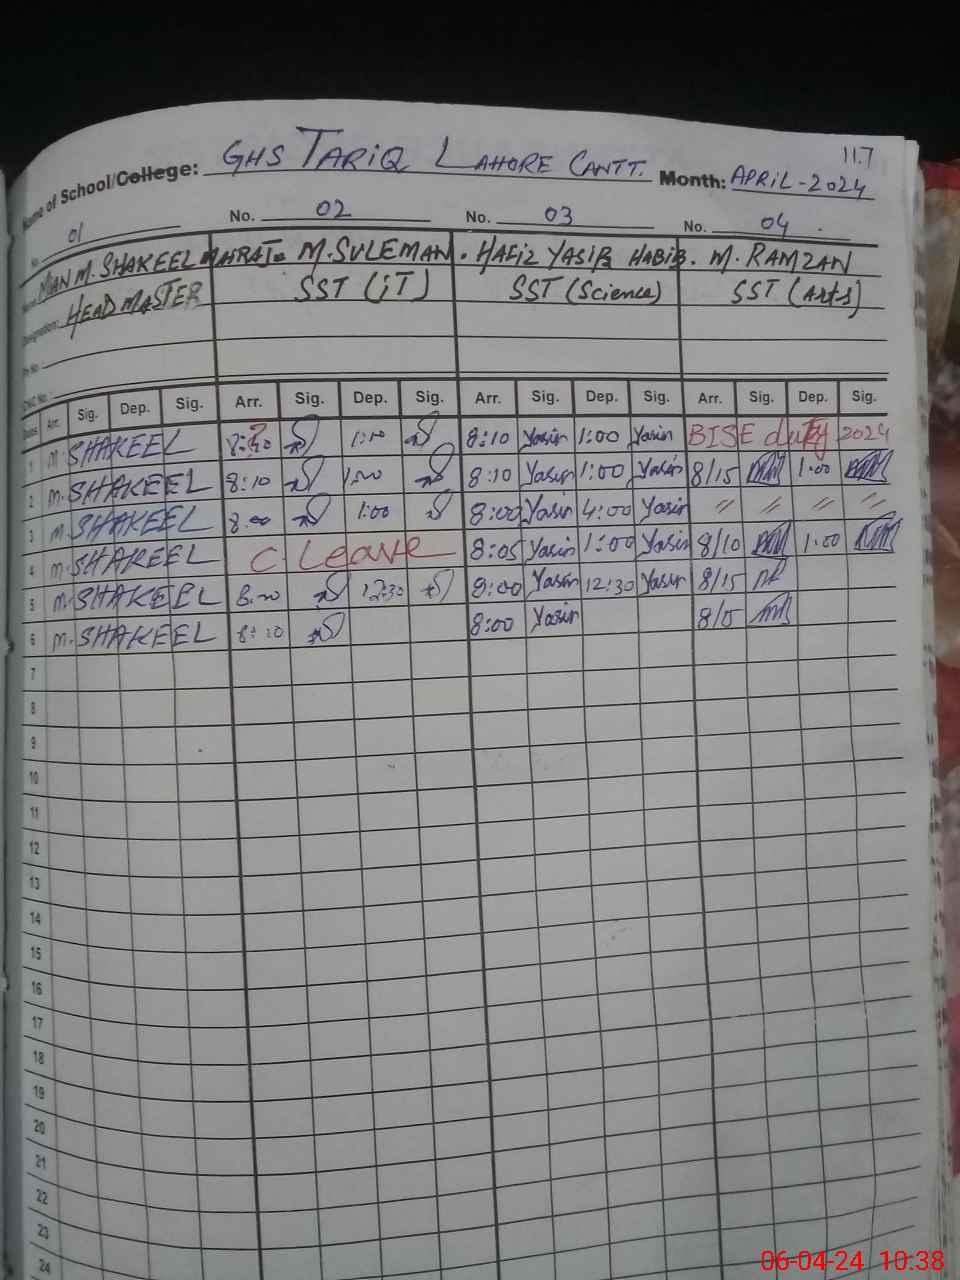 11.7
Name of School/College: GHS TARIQ LAHORE CANTT. Month: APRIL-2024
01 No. 02 No. 03 No. 04
MIAN M. SHAKEEL M. SULEMAN. HAFIZ YASIR HABIB. M. RAMZAN
HEAD MASTER SST (iT) SST (Science) SST (Arts)
Designation:
CNIC No.
Dates Arr. Sig. Dep. Sig. Arr. Sig. Dep. Sig. Arr. Sig. Dep. Sig. Arr. Sig. Dep. Sig.
1 M. SHAKEEL 1:00 8:10 Yasir 1:00 Yasir BISE duty 2024
2 M. SHAKEEL 8:10 1:00 8:10 Yasir 1:00 Yasir 8/15 1:00
3 M. SHAKEEL 8:00 1:00 8:00 Yasir 4:00 Yasir 〃 〃 〃 〃
4 M. SHAKEEL C. Leave 8:05 Yasir 1:00 Yasir 8/10 1:00
5 M. SHAKEEL 12:30 8:00 Yasir 12:30 Yasir 8/15
6 M. SHAKEEL 8:10 8:00 Yasir 8/15
7
8
9
10
11
12
13
14
15
16
17
18
19
20
21
22
23
24
06-04-24 10:38